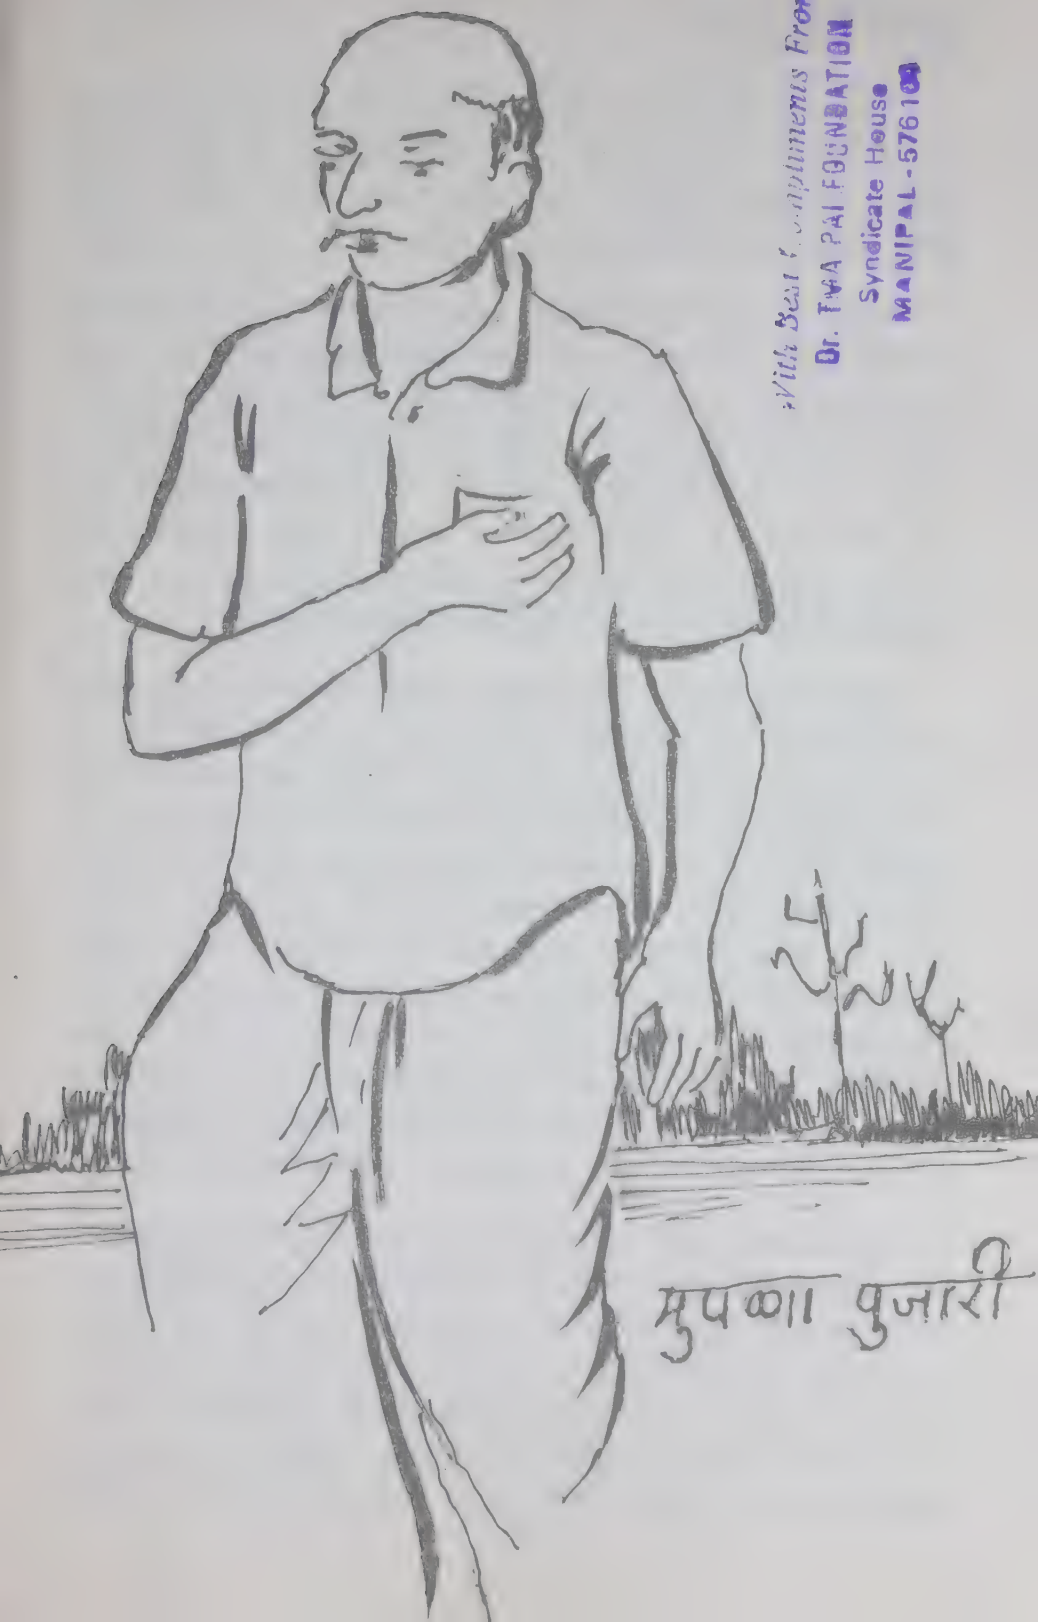 With Best Compliments From
Dr. TMA PAI FOUNDATION
Syndicate House
MANIPAL-576104
पुजारी